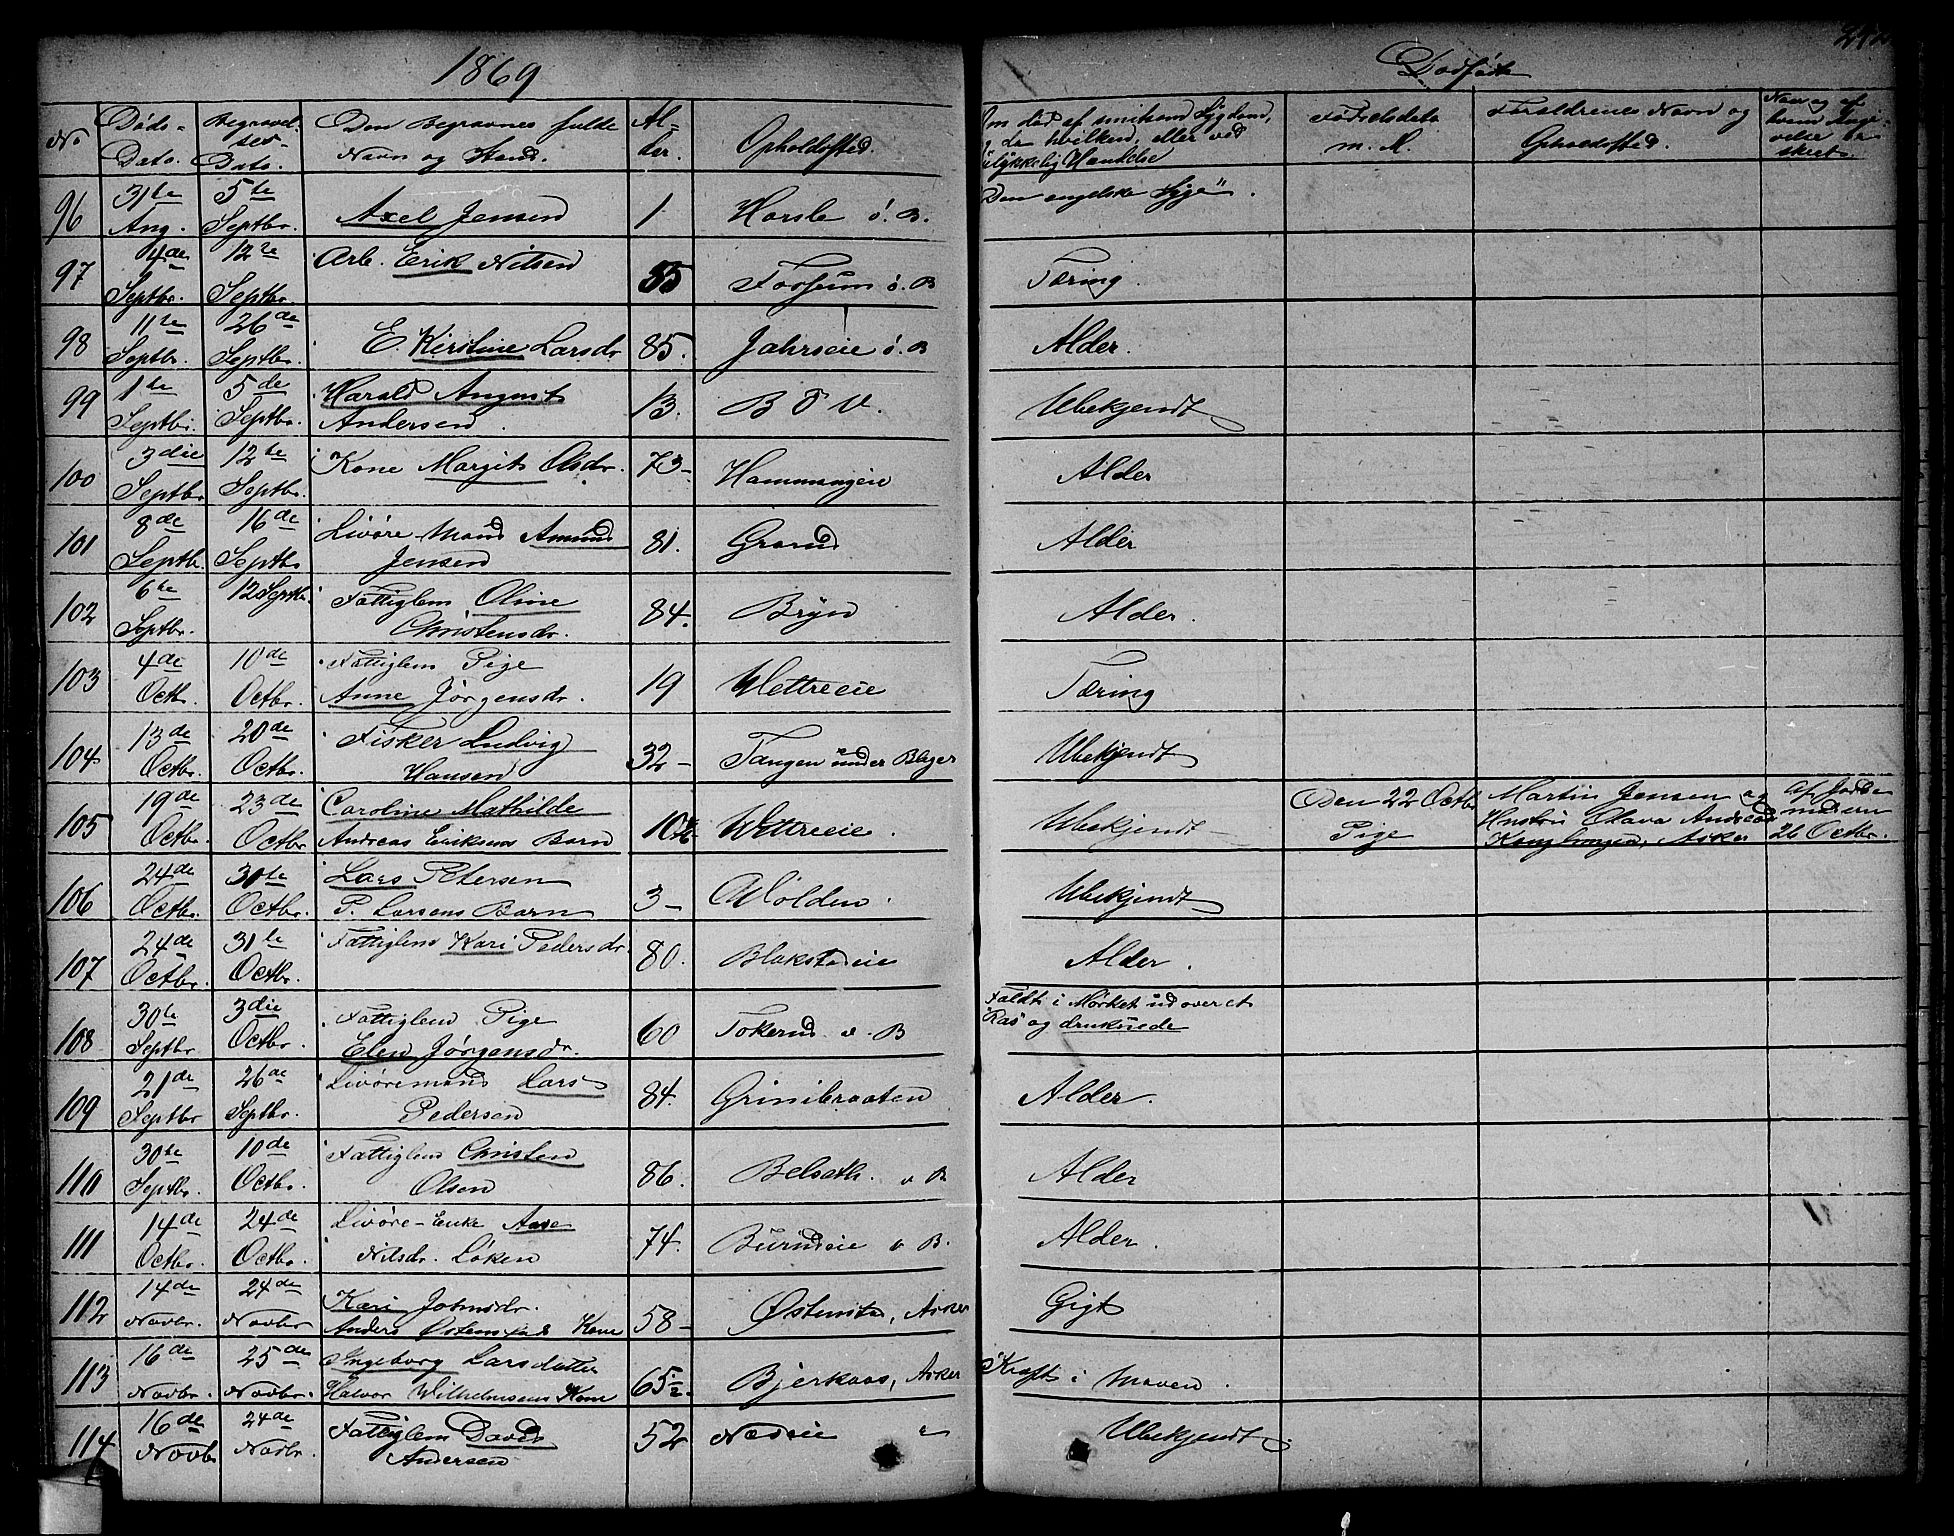 1869
Dødfødte
No
Døds-
Dato.
Begravel
ses-
Dato.
Den Begravnes fulde
Navn og Stand.
Al-
der.
Opholdssted.
Om død af smitsom Sygdom,
da hvilken, eller ved
ulykkelig Hændelse
Fødselsdato
m. K.
Forældrenes Navn og
Opholdssted.
Naar og af
hvem Angi-
velse er
skeet.
96 31te Aug. 5te Septbr. Axel Jensen 1 Horsle ö. B. Den engelske Syge"
97 4de Septbr. 12te Septbr. Arb. Erik Nilsen 85 Fossum ö. B Tæring
98 11te Septbr. 26de Septbr. E. Kirstine Larsdr 85. Jahrseie ö. B Alder.
99 1te Septbr. 5de Septbr. Harald August
Andersen 13. B Ö V. Ubekjendt
100 3die Septbr 12te Septbr. Kone Margit Olsdr. 73- Hammangeie Alder
101 8de Septbr. 16de Septbr Livöre-Mand Amund
Jensen 81. Grorud Alder
102 6te Septbr. 12 Septbr. Fattiglem Oline
Christensdr. 84. Bryn Alder.
103 4de Octbr. 10de Octbr. Fattiglem Pige
Anne Jørgensdr. 19 Wettreeie Tæring
104 13de Octbr. 20de Octbr. Fisker Ludvig
Hansen 32- Tangen under Blager Ubekjendt
105 19de Octbr. 23de Octbr Caroline Mathilde
Andreas Eriksens Barn 10 Wettreeie. Ubekjendt Den 22 Octbr
Pige Martin Jensen og
Hustru Olava Andreasd
Kongshaugen, Asker Af Jorde
moderen
26 Octbr.
106 24de Octbr. 30te Octbr. Lars Petersen
P. Larsens Barn 3- Wolden. Ubekjendt
107 24de Octbr. 31te Octbr. Fattiglem Kari Pedersdr. 80. Blakstadeie Alder.
108 30te Septbr 3die Octbr. Fattiglem Pige
Elen Jørgensdr. 60 Tokerud v. B Faldt i Mørket ud over et
"Ras" og druknede
109 21de Septbr 26de Septbr. Livöremand Lars
Pedersen 84. Grinibraaten Alder.
110 30te Septbr. 10de Octbr. Fattiglem Christen
Olsen 86. Belseth. v B Alder
111 14de Octbr. 24de Octbr. Livöre-Enke Aase
Nilsdr. Löken 74. Burudeie v B. Alder.
112 14de Novbr. 24de Novbr Kari Johnsdr.
Anders Østenstads Kone 58- Østensta, Asker Gigt
113 16de Novbr. 25de Novbr. Ingeborg Larsdatter
Halvor Wilhelmsens Kone 65½. Bjerkaas, Asker Kræft i Maven.
114 16de Novbr 24de Novbr. Fattiglem David
Andersen 52 Næseie " Ubekjendt.